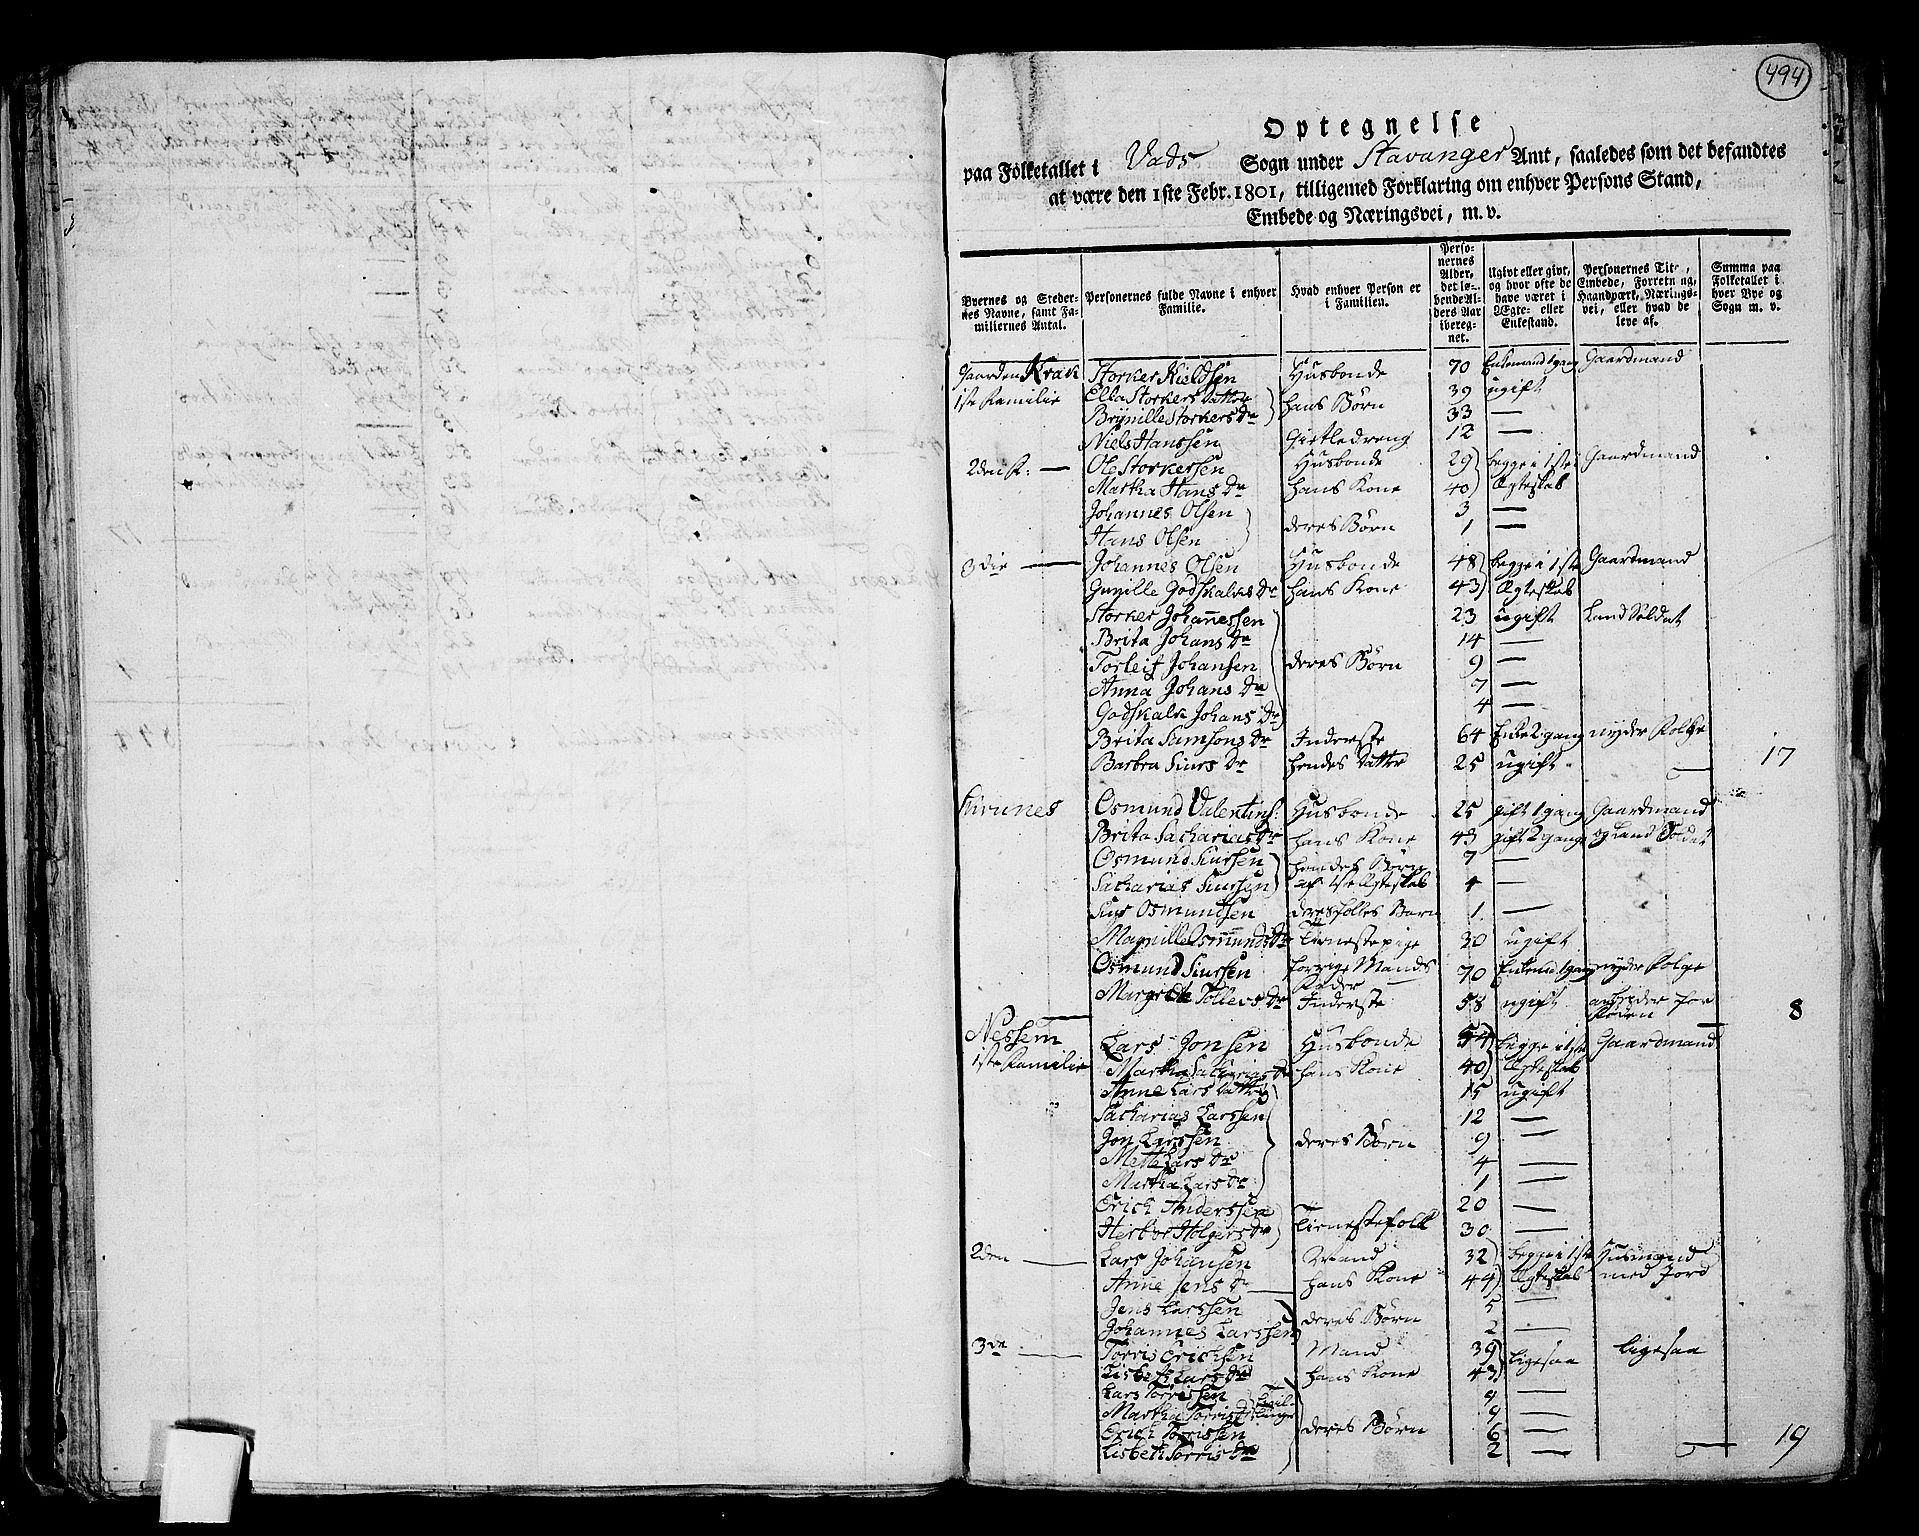 494
Optegnelse
paa Folketallet i Vads Sogn under Stavanger Amt, saaledes som det befandtes
at være den 1ste Febr. 1801, tilligemed Forklaring om enhver Persons Stand,
Embede og Næringsvei, m. v.
Byernes og Stedernes Navne, samt Familiernes Antal. Personernes fulde Navne i enhver Familie. Hvad enhver Person er i Familien. Personernes Alder, det løbende Alders Aar iberegnet. Ugivt eller givt, og hvor ofte de have været i Ægte- eller Enkestand. Personernes Titel, Embede, Forretning, Haandværk, Næringsvei, eller hvad de leve af. Summa paa Folketallet i hver Bye og Sogn m. v.
Gaarden Krak Storker Nieldsen Husbonde 70 Enkemand 1 gang Gaardmand
1ste Familie Ella Storkers Datter hans Børn 39 ugift
Brynille Storkers Dr 33 —
Niels Hanssen Gietledreng 12 —
2den F: — Ole Storkersen Husbonde 29 begge i 1ste Gaardmand
Martha Hans Dr hans Kone 40 Ægteskab
Johannes Olsen 3 —
Hans Olsen deres Børn 1 —
3die — Johannes Olsen Husbonde 48 begge i 1ste Gaardmand
Gunille Godskalks Dr hans Kone 43 Ægteskab
Storker Johannessen 23 ugift Land Soldat
Brita Johans Dr 14 —
Torleif Johansen deres Børn 9 —
Anna Johans Dr 7 —
Godskalk Johans Dr 4 —
Brita Samsons Dr Inderste 64 Enke 2 gang nyder Folge
Barbra Siurs Dr hendes Datter 25 ugift — 17
Osmund Valentins: Husbonde 25 gift 1 gang Gaardmand
Brita Sacharias Dr hans Kone 43 gift 2 gange og Land Soldat
Osmund Siursen hendes Børn 7 —
Sacharias Siursen af 1ste Ægteskab 4 —
Siur Osmundsen deres fælles Barn 1 —
Magnille Osmunds Dr Tienestepige 30 ugift
Osmund Siursen forrige Mands Fader 70 Enkemd 1 gang nyder Folge
Margrete Tollevs Dr Inderste 58 ugift arbeider for Føden — 8
Nessem Lars Jonsen Husbonde 54 begge i 1ste Gaardmand
1ste Familie Martha Sacharias Dr hans Kone 40 Ægteskab
Anne Lars Datter 15 ugift
Sacharias Larssen 12 —
Jon Larssen deres Børn 9 —
Mette Lars Dr 4 —
Martha Lars Dr 1 —
Erich Anderssen 20 —
Herbor Holgers Dr Tienestefolk 30 —
2den — Lars Johansen Mand 32 begge i 1ste Husmand
Anne Jens Dr — hans Kone 44 Ægteskab med Jord
Jens Larssen 5 —
Johannes Larssen deres Børn 2 —
3de — Torris Erichsen Mand 39 ligesaa ligesaa
Lisbeth Lars Dr hans Kone 43
Lars Torrissen Tvillinger 9 —
Martha Torris D 9 —
Erich Torrissen deres Børn 6 —
Lisbeth Torris Dr 2 — — 19